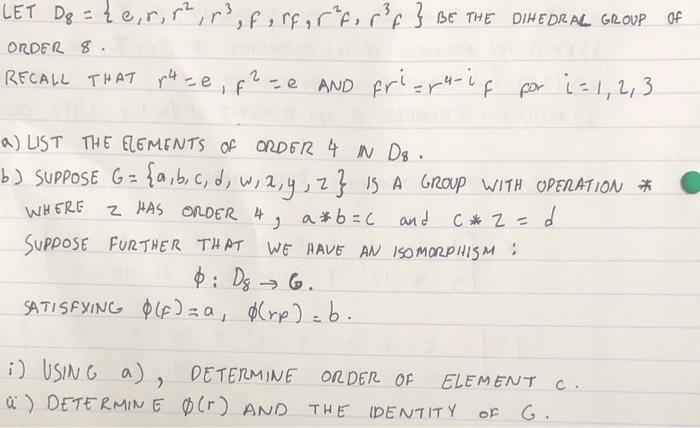 LET D₈ = { e, r, r², r³, f, rf, r²f, r³f } BE THE DIHEDRAL GROUP OF
ORDER 8.
RECALL THAT r⁴ = e, f² = e AND frⁱ = r⁴⁻ⁱ f for i = 1, 2, 3
a) LIST THE ELEMENTS OF ORDER 4 IN D₈.
b) SUPPOSE G = {a, b, c, d, w, x, y, z} IS A GROUP WITH OPERATION *
WHERE z HAS ORDER 4, a * b = c and c * z = d
SUPPOSE FURTHER THAT WE HAVE AN ISOMORPHISM :
ϕ : D₈ → G.
SATISFYING ϕ(f) = a, ϕ(rf) = b.
i) USING a), DETERMINE ORDER OF ELEMENT c.
ii) DETERMINE ϕ(r) AND THE IDENTITY OF G.